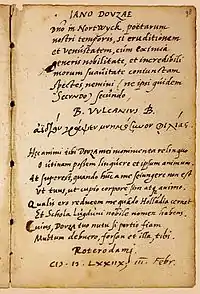 IANO DOVZAE
Dño in Nortwyck, poëtarum
nostri temporis, si eruditionem
et venustatem, cum eximia
generis nobilitate, et incredibili
morum suavitate coniunctam
spectes nemini (ne ipsi quidem
Secundo) secundo,
B. VVLCANIVS B.
φιλίας.
Hęc animi tibi Douza mei monumenta relinquo
O utinam possem linquere et ipsum animum.
At superest, quando huc a me seiungere nun est
Vt tuus, ut cupio corpore sim atq animo.
Qualis ero reducem me quādo Hollādia cernet
Et Schola Ligduni nobile nomen habens.
Cuius, Douza tuo nutu si portio fiam
Multum debuero, forsan et illa, tibi.
Roterodami,
CIↃ.IↃ.LXXIIX. III. Febr.